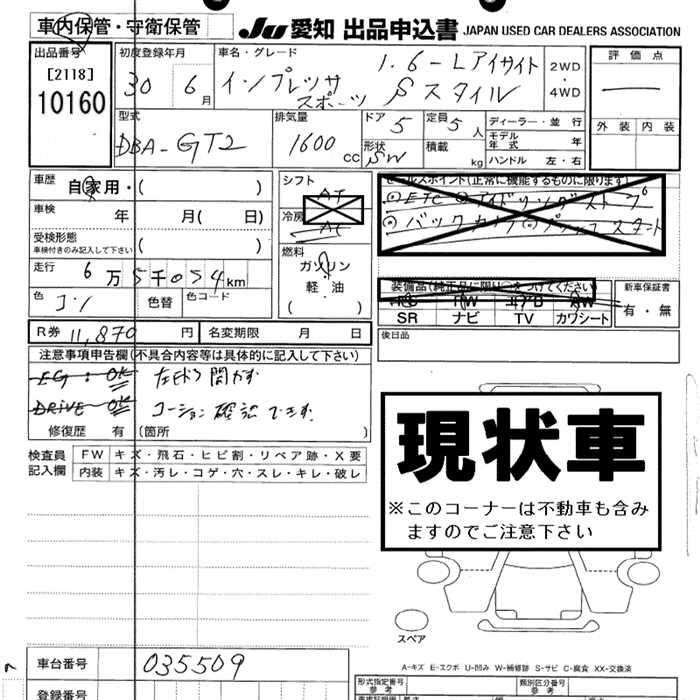 車内保管・守衛保管 JU 愛知 出品申込書 JAPAN USED CAR DEALERS ASSOCIATION
出品番号 初度登録年月 車名・グレード 評価点
[2118] 30 6月 インプレッサ 1.6-Lアイサイト 2WD・4WD
10160 スポーツ Sスタイル
型式 排気量 ドア 5 定員 5人 ディーラー・並行 外装 内装
DBA-GT2 1600cc 形状 SW 積載 kg モデル年式 年
ハンドル 左・右
車歴 自家用・( ) シフト AT セールスポイント(正常に機能するものに限ります)
車検 年 月( 日) 冷房 AC ETC
受検形態 ( ) バックカメラ プッシュスタート
車検付きのみ記入して下さい
走行 6万5千054km 燃料 ガソリン 軽油 ( )
装備品(純正品に限り○をつけてください) 新車保証書
色 コン 色替 色コード 有・無
SR ナビ TV カワシート
R券 11,870円 名変期限 月 日 後日品
注意事項申告欄(不具合内容等は具体的に記入して下さい)
EG:OK
DRIVE OK コーション確認できず
修復歴 有(箇所 )
検査員記入欄 FW キズ・飛石・ヒビ割・リペア跡・X要
内装 キズ・汚レ・コゲ・穴・スレ・キレ・破レ
現状車
※このコーナーは不動車も含み
ますのでご注意下さい
スペア
A-キズ E-エクボ U-凹み W-補修跡 S-サビ C-腐食 XX-交換済
車台番号 035509 形式指定番号 参考 類別区分番号 参考
登録番号